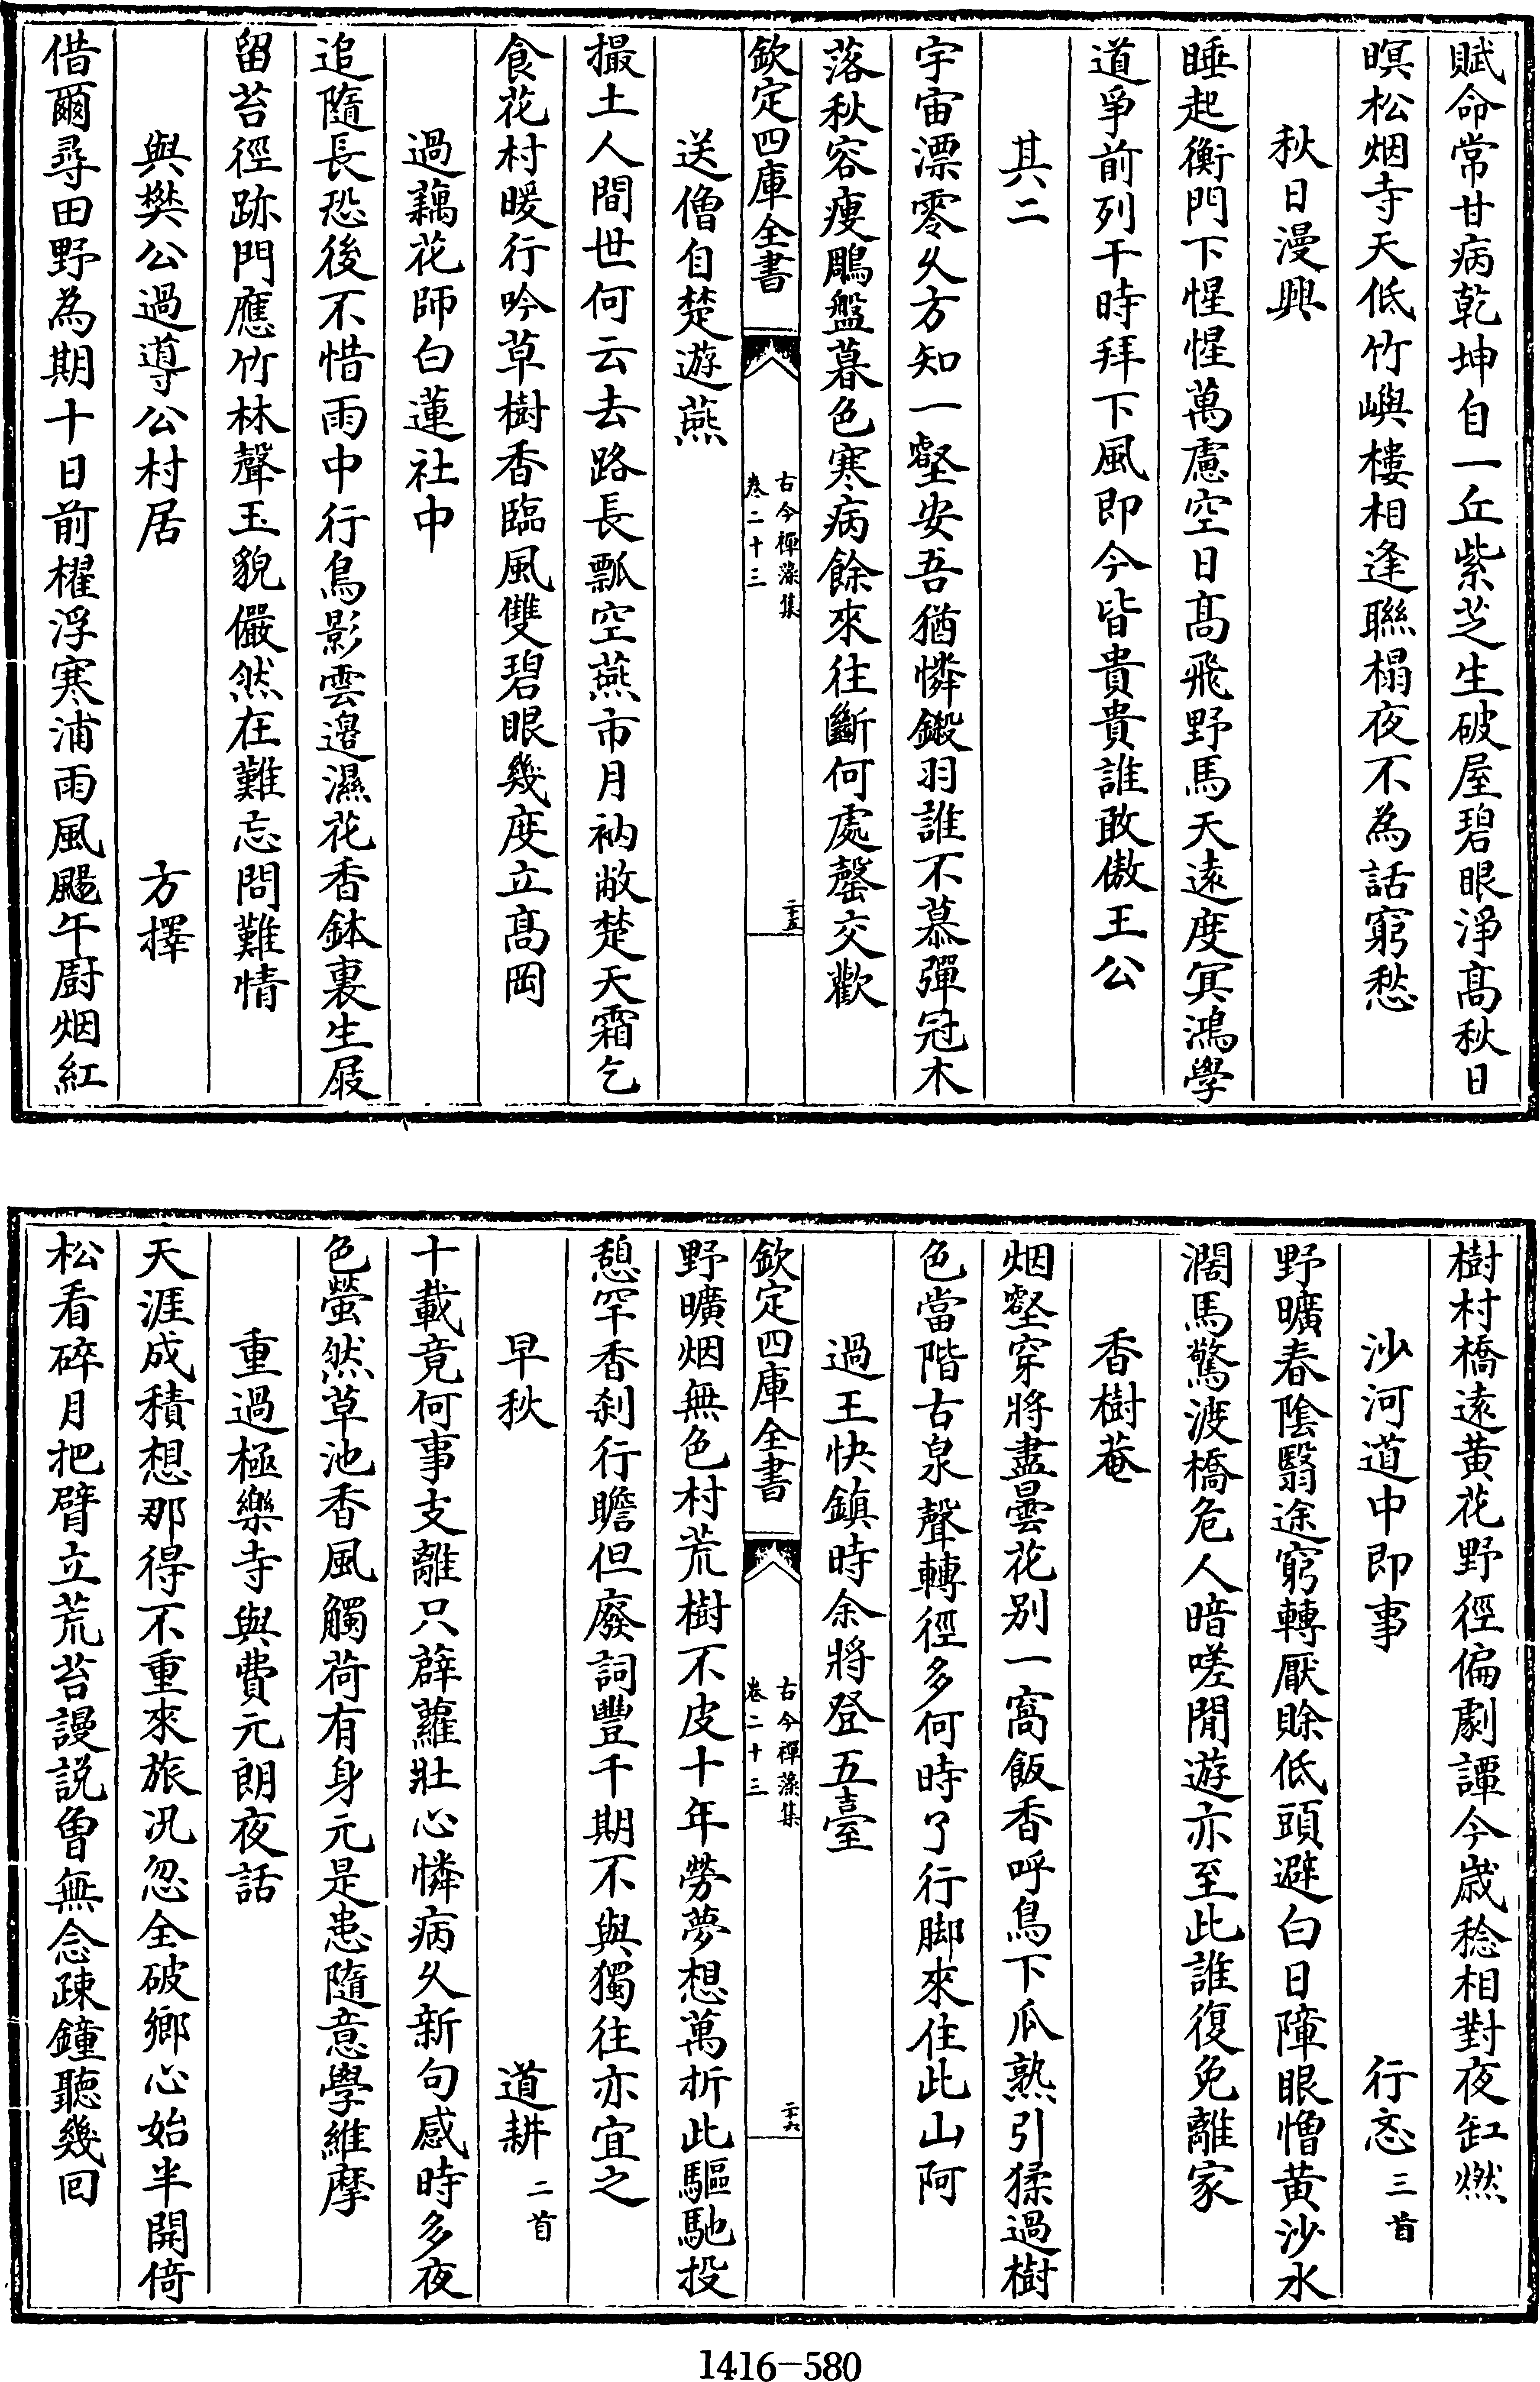 賦命常甘病乾坤自一丘紫芝生破屋碧眼淨髙秋日
暝松烟寺天低竹嶼樓相逢聯榻夜不為話窮愁
秋日漫興
睡起衡門下惺惺萬慮空日髙飛野馬天遠度冥鴻學
道爭前列干時拜下風即今皆貴貴誰敢傲王公
其二
宇宙漂零久方知一壑安吾猶憐鍛羽誰不慕彈冠木
落秋容瘦鵰盤暮色寒病餘來往斷何處罄交歡
欽定四庫全書
古今禪藻集
卷二十三
二十五
送僧自楚遊燕
撮土人間世何云去路長瓢空燕市月衲敝楚天霜乞
食花村暖行吟草樹香臨風雙碧眼幾度立髙岡
過藕花師白蓮社中
追隨長恐後不惜雨中行鳥影雲邉濕花香鉢裏生屐
留苔徑跡門應竹林聲玉貌儼然在難忘問難情
與樊公過導公村居
方擇
借爾尋田野為期十日前櫂浮寒浦雨風颺午厨烟紅
樹村橋遠黄花野徑偏劇譚今歳稔相對夜缸燃
沙河道中即事
行忞三首
野曠春陰翳途窮轉厭賖低頭避白日障眼憎黄沙水
濶馬驚渡橋危人暗嗟閒遊亦至此誰復免離家
香樹菴
烟壑穿將盡曇花别一窩飯香呼鳥下瓜熟引猱過樹
色當階古泉聲轉徑多何時了行脚來住此山阿
過王快鎮時余將登五臺
欽定四庫全書
古今禪藻集
卷二十三
二十六
野曠烟無色村荒樹不皮十年勞夢想萬折此驅馳投
憩罕香刹行瞻但廢詞豐干期不與獨往亦宜之
早秋
道耕二首
十載竟何事支離只薜蘿壯心憐病久新句感時多夜
色螢然草池香風觸荷有身元是患隨意學維摩
重過極樂寺與費元朗夜話
天涯成積想那得不重來旅況忽全破鄉心始半開倚
松看碎月把臂立荒苔謾説曾無念疎鐘聽幾回
1416-580